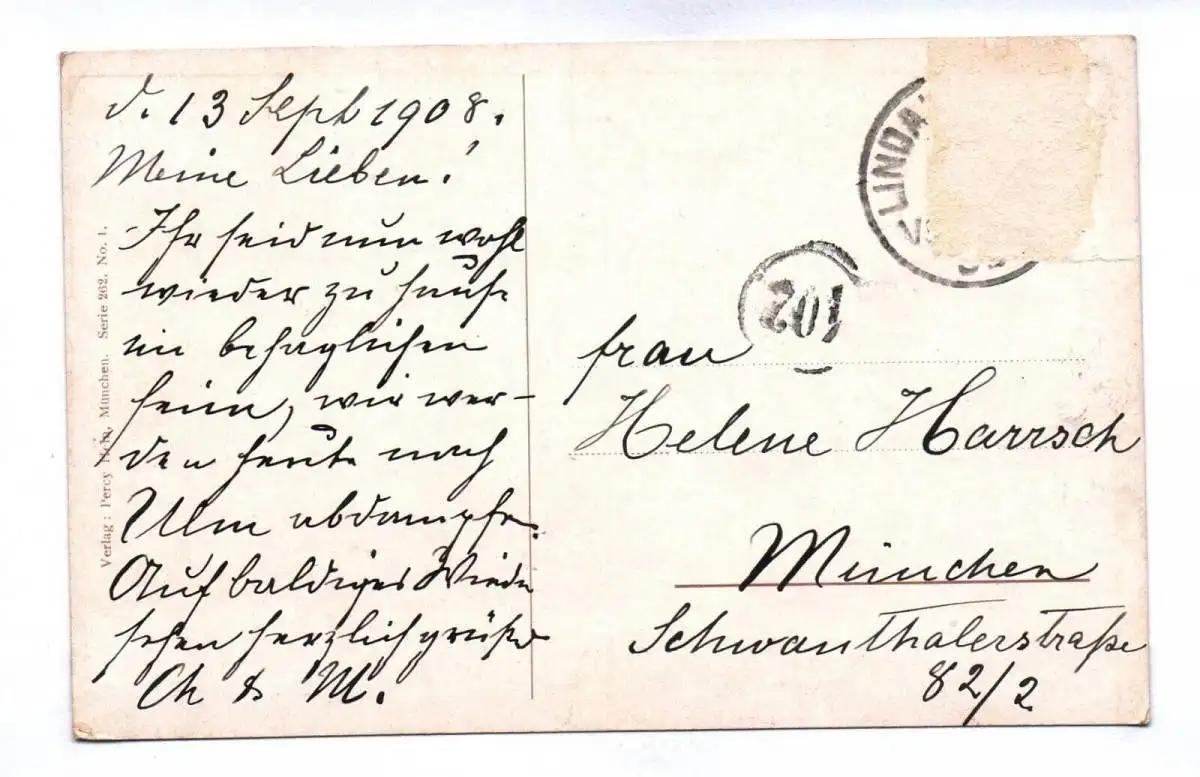 d. 13 Sept 1908.
Meine Lieben!
Ihr seid nun wohl
wieder zu Hause
im behaglichen
Heim, wir wer-
den heute nach
Ulm abdampfen.
Auf baldiges Wieder
sehen herzlich grüßend
Ch & M.
Verlag: Percy Hein, München. Serie 262. No. 1.
LINDA
201
Frau
Helene Harrsch
München
Schwanthalerstraße
82/2